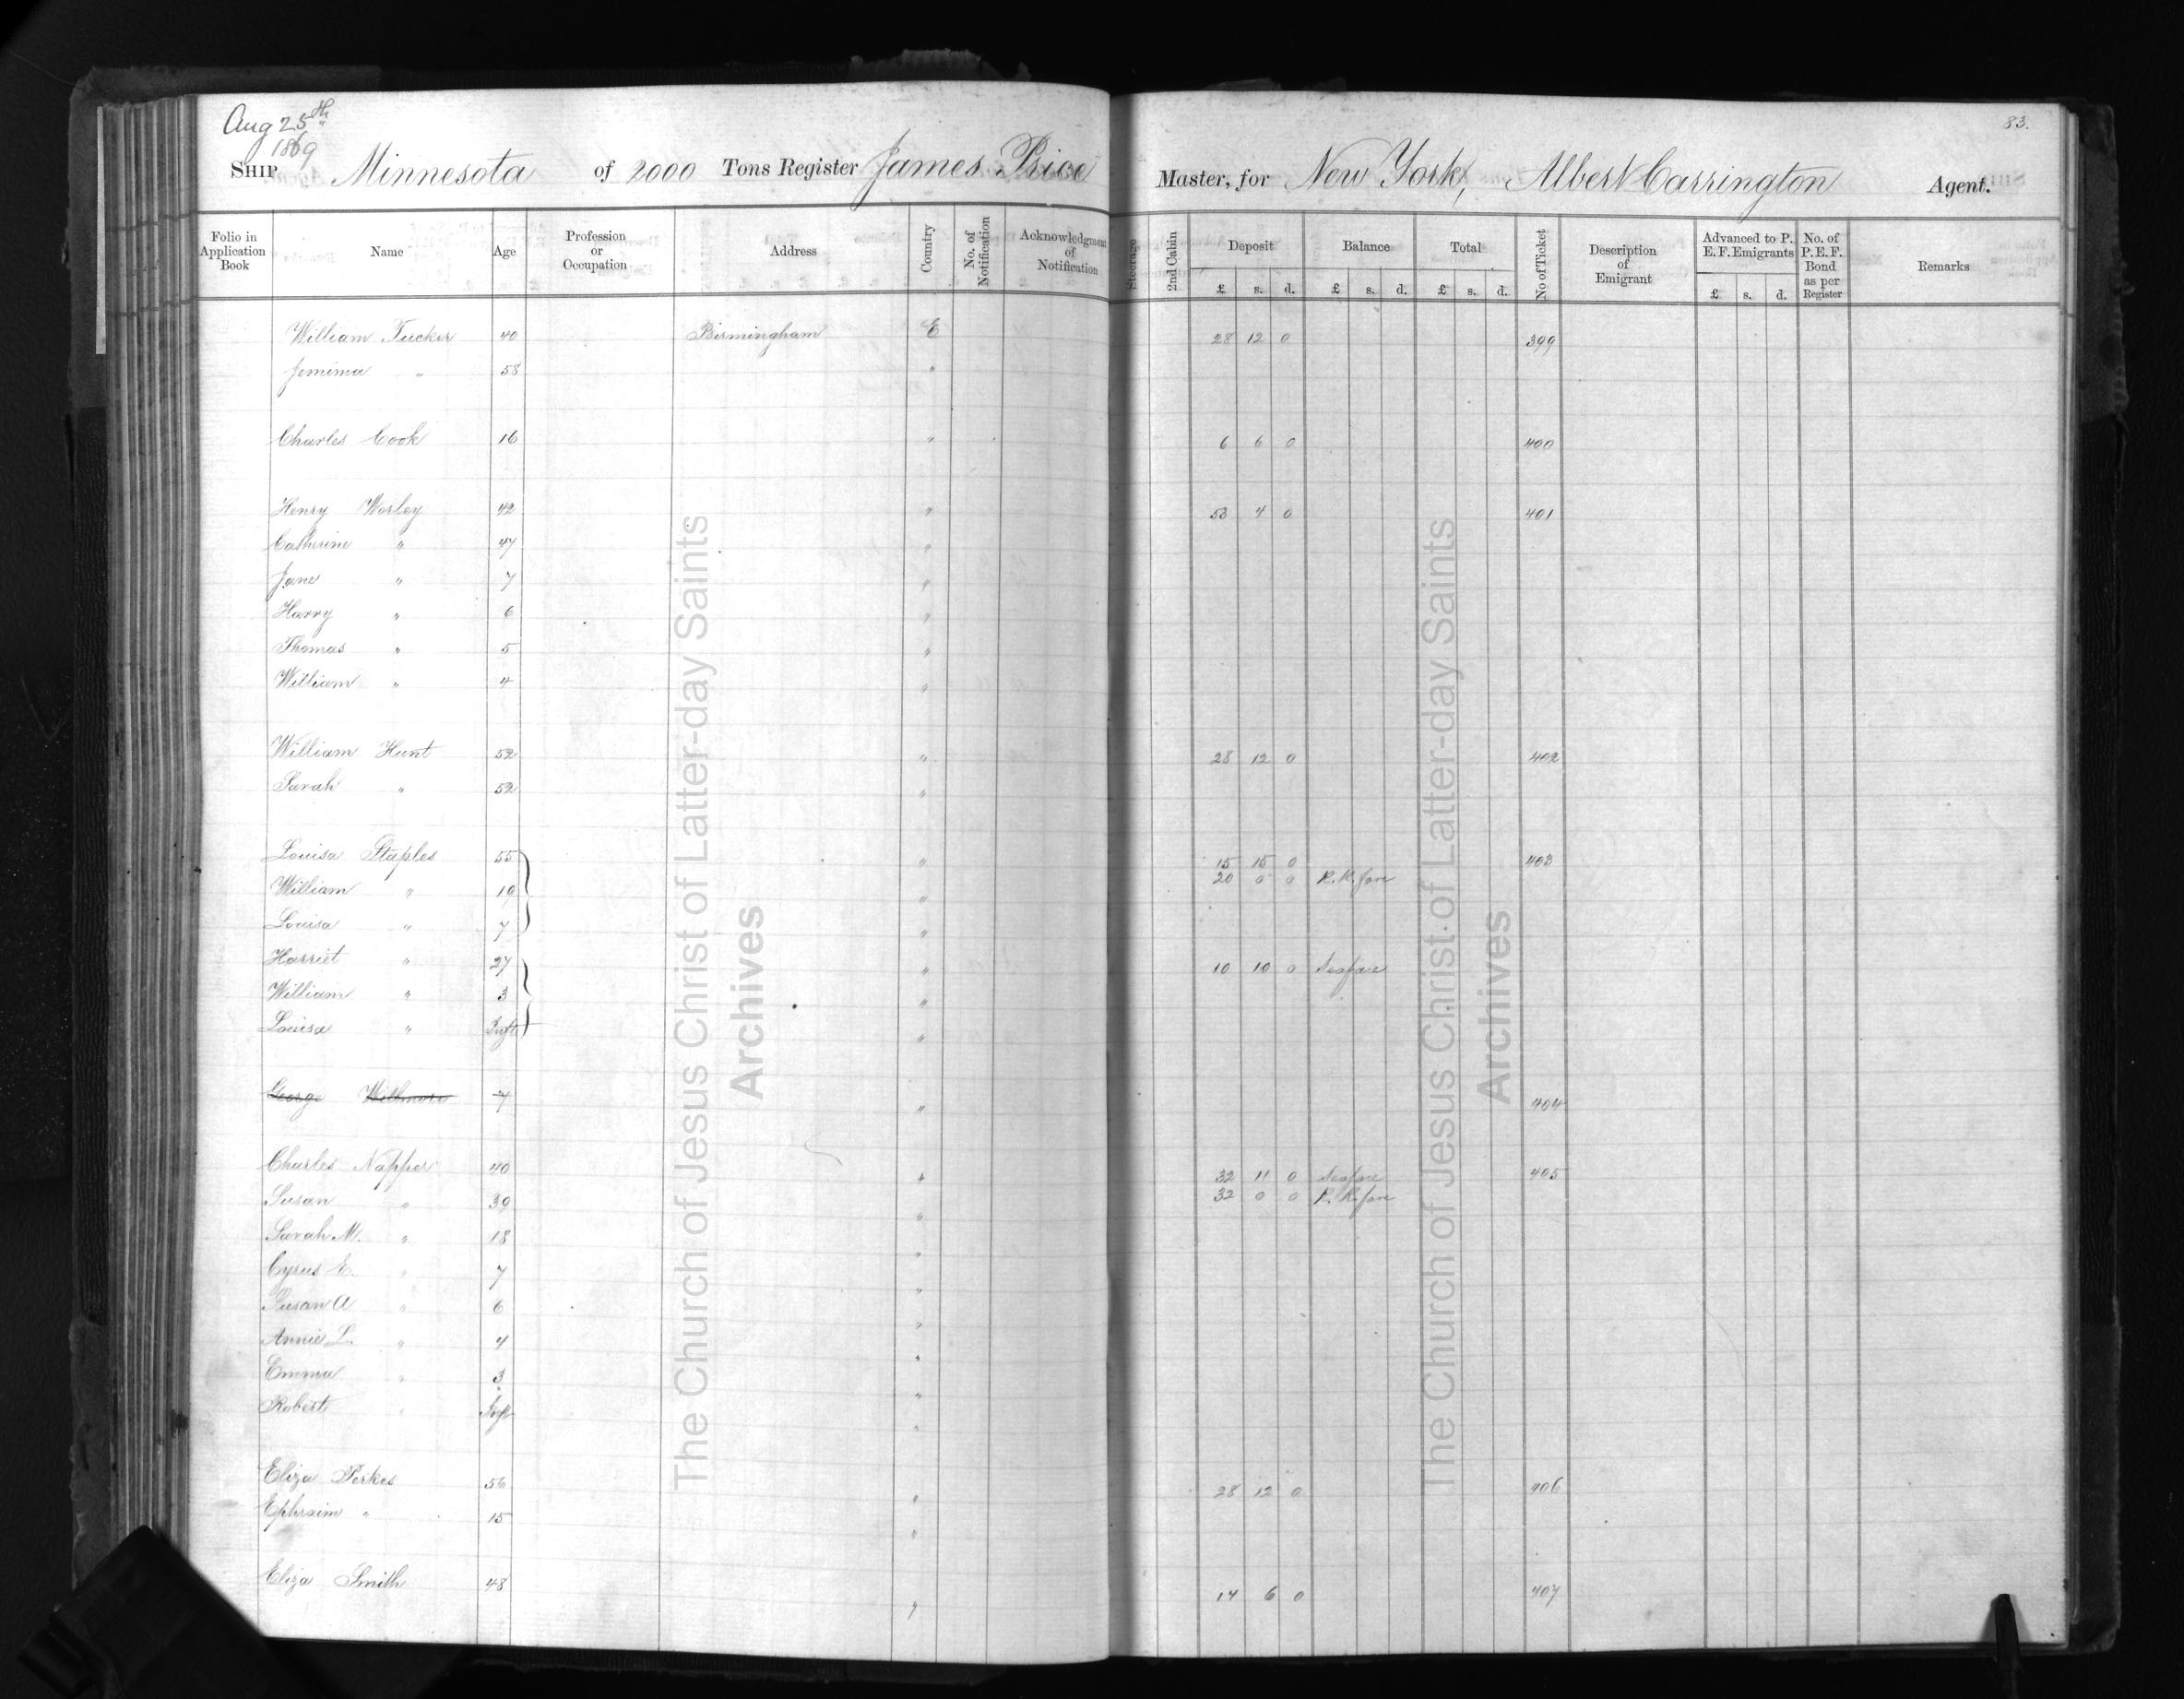 Aug 25th
1869
83.
SHIP Minnesota of 2000 Tons Register James Price Master, for New York, Albert Carrington Agent.
Folio in Application Book Name Age Profession or Occupation Address Country No. of Notification Acknowledgment of Notification Steerage 2nd Cabin Deposit £ s. d. Balance £ s. d. Total £ s. d. No of Ticket Description of Emigrant Advanced to P. E. F. Emigrants £ s. d. No. of P. E. F. Bond as per Register Remarks
William Tucker 40 Birmingham E 28 12 0 399
Jemima " 58 "
Charles Cook 16 " 6 6 0 400
Henry Worley 42 " 53 4 0 401
Catherine " 47 "
Jane " 7 "
Harry " 6 "
Thomas " 5 "
William " 4 "
William Hunt 52 " 28 12 0 402
Sarah " 52 "
Louisa Staples 55 " 15 15 0 403
20 0 0 R. R. fare
William " 19 "
Louisa " 7 "
Harriet " 27 " 10 10 0 Seafare
William " 3 "
Louisa " Inft "
George Willmore 7 " 404
Charles Napper 40 " 32 11 0 Seafare 405
32 0 0 R. R. fare
Susan " 39 "
Sarah M. " 18 "
Cyrus E. " 7 "
Susan A " 6 "
Annie L. " 4 "
Emma " 3 "
Robert " Inft "
Eliza Perkes 56 " 28 12 0 406
Ephraim " 15 "
Eliza Smith 48 " 14 6 0 407
The Church of Jesus Christ of Latter-day Saints
Archives
The Church of Jesus Christ of Latter-day Saints
Archives